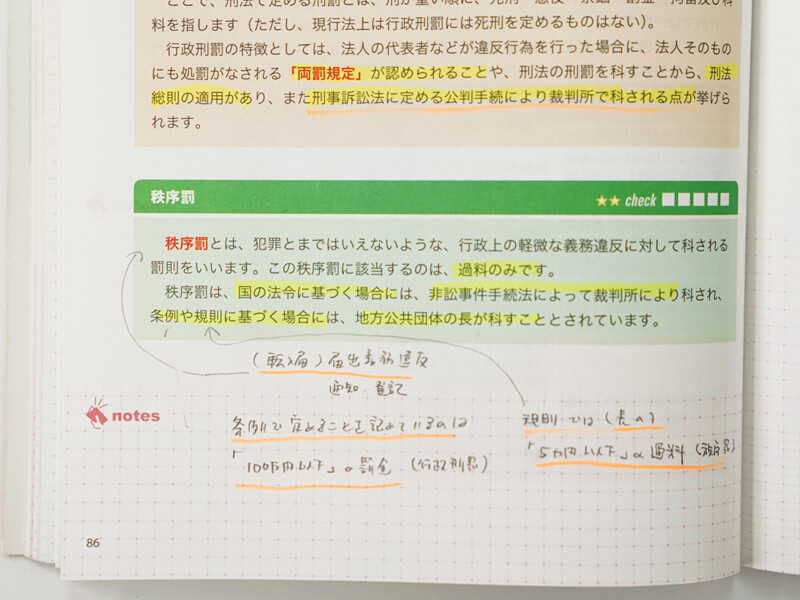 ここで、刑法で定める刑罰とは、刑が重い順に、死刑・懲役・禁錮・罰金・拘留及び科
料を指します（ただし、現行法上は行政刑罰には死刑を定めるものはない）。
行政刑罰の特徴としては、法人の代表者などが違反行為を行った場合に、法人そのもの
にも処罰がなされる「両罰規定」が認められることや、刑法の刑罰を科すことから、刑法
総則の適用があり、また刑事訴訟法に定める公判手続により裁判所で科される点が挙げら
れます。
秩序罰 ★★ check
秩序罰とは、犯罪とまではいえないような、行政上の軽微な義務違反に対して科される
罰則をいいます。この秩序罰に該当するのは、過料のみです。
秩序罰は、国の法令に基づく場合には、非訟事件手続法によって裁判所により科され、
条例や規則に基づく場合には、地方公共団体の長が科すこととされています。
（転入届）届出義務違反
通知・登記
notes
条例で定めることを認めているのは
「100万円以下」の罰金（行政刑罰）
規則では（長の）
「5万円以下」の過料（秩序罰）
86